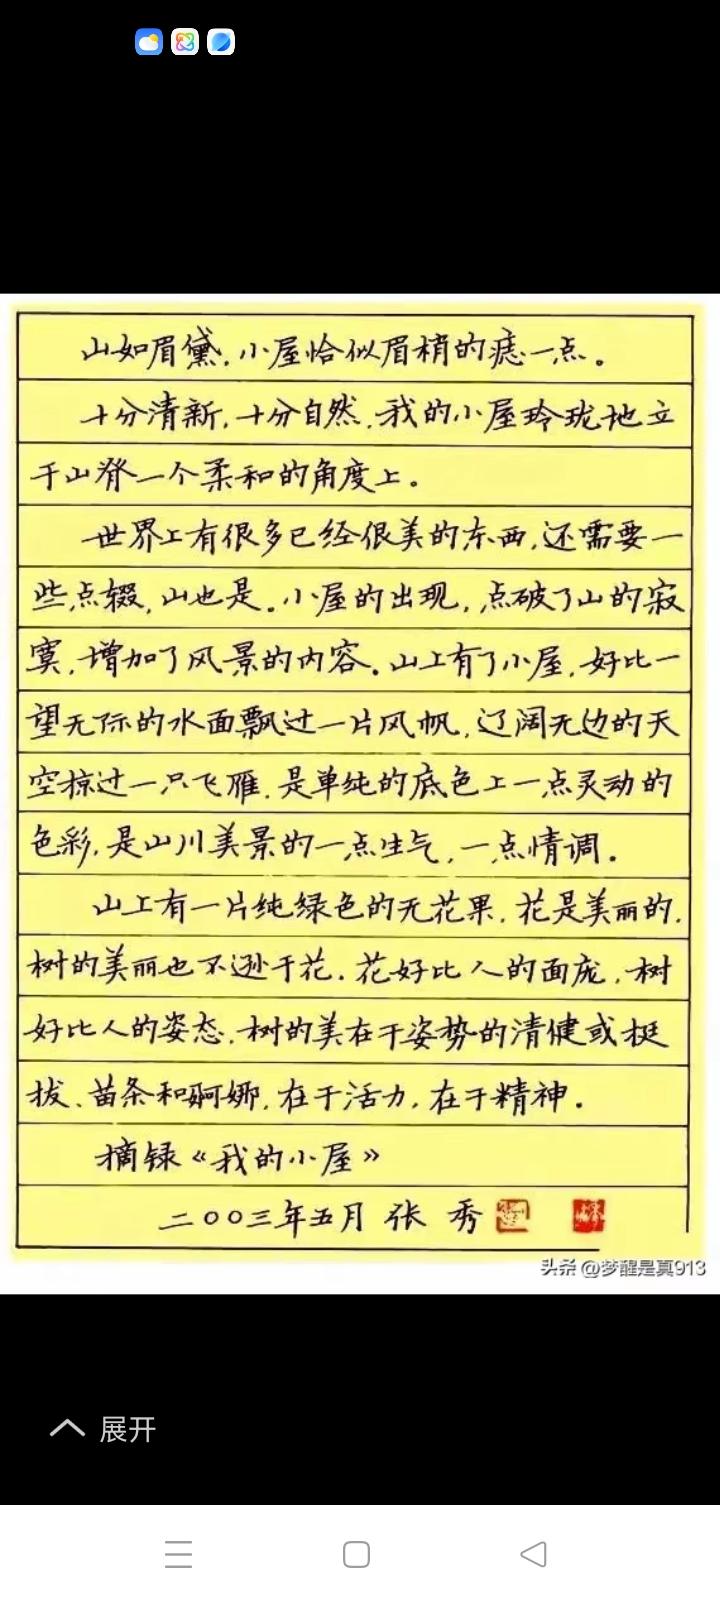 山如眉黛,小屋恰似眉梢的痣一点。
十分清新,十分自然,我的小屋玲珑地立
于山脊一个柔和的角度上。
世界上有很多已经很美的东西,还需要一
些点缀,山也是。小屋的出现,点破了山的寂
寞,增加了风景的内容。山上有了小屋,好比一
望无际的水面飘过一片风帆,辽阔无边的天
空掠过一只飞雁,是单纯的底色上一点灵动的
色彩,是山川美景的一点生气,一点情调。
山上有一片纯绿色的无花果,花是美丽的,
树的美丽也不逊于花。花好比人的面庞,树
好比人的姿态,树的美在于姿势的清健或挺
拔、苗条和婀娜,在于活力,在于精神。
摘录《我的小屋》
二〇〇三年五月 张 秀
头条 @梦醒是真913
展开